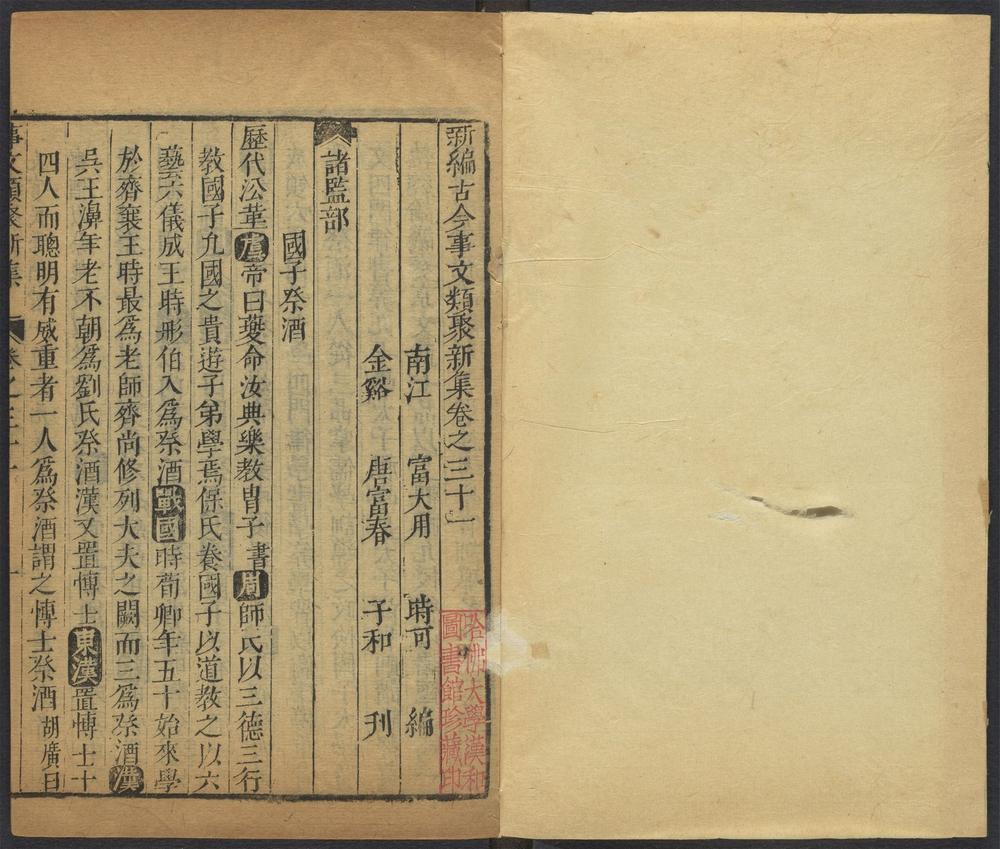 新編古今事文類聚新集卷之三十一
南江 富大用 時可 編
金谿 唐富春 子和 刋
諸監部
國子祭酒
歷代沿革虞帝曰夔命汝典樂教胄子書周師氏以三德三行
教國子凢國之貴遊子弟學焉保氏養國子以道教之以六
藝六儀成王時彤伯入爲祭酒戰國時荀卿年五十始來學
於齊襄王時最爲老師齊尚修列大夫之闕而三爲祭酒漢
吳王濞年老不朝爲劉氏祭酒漢又置博士東漢置博士十
四人而聰明有威重者一人爲祭酒謂之博士祭酒胡廣曰
事文類聚新集 卷之三十一 一
哈佛大學漢和
圖書館珍藏印